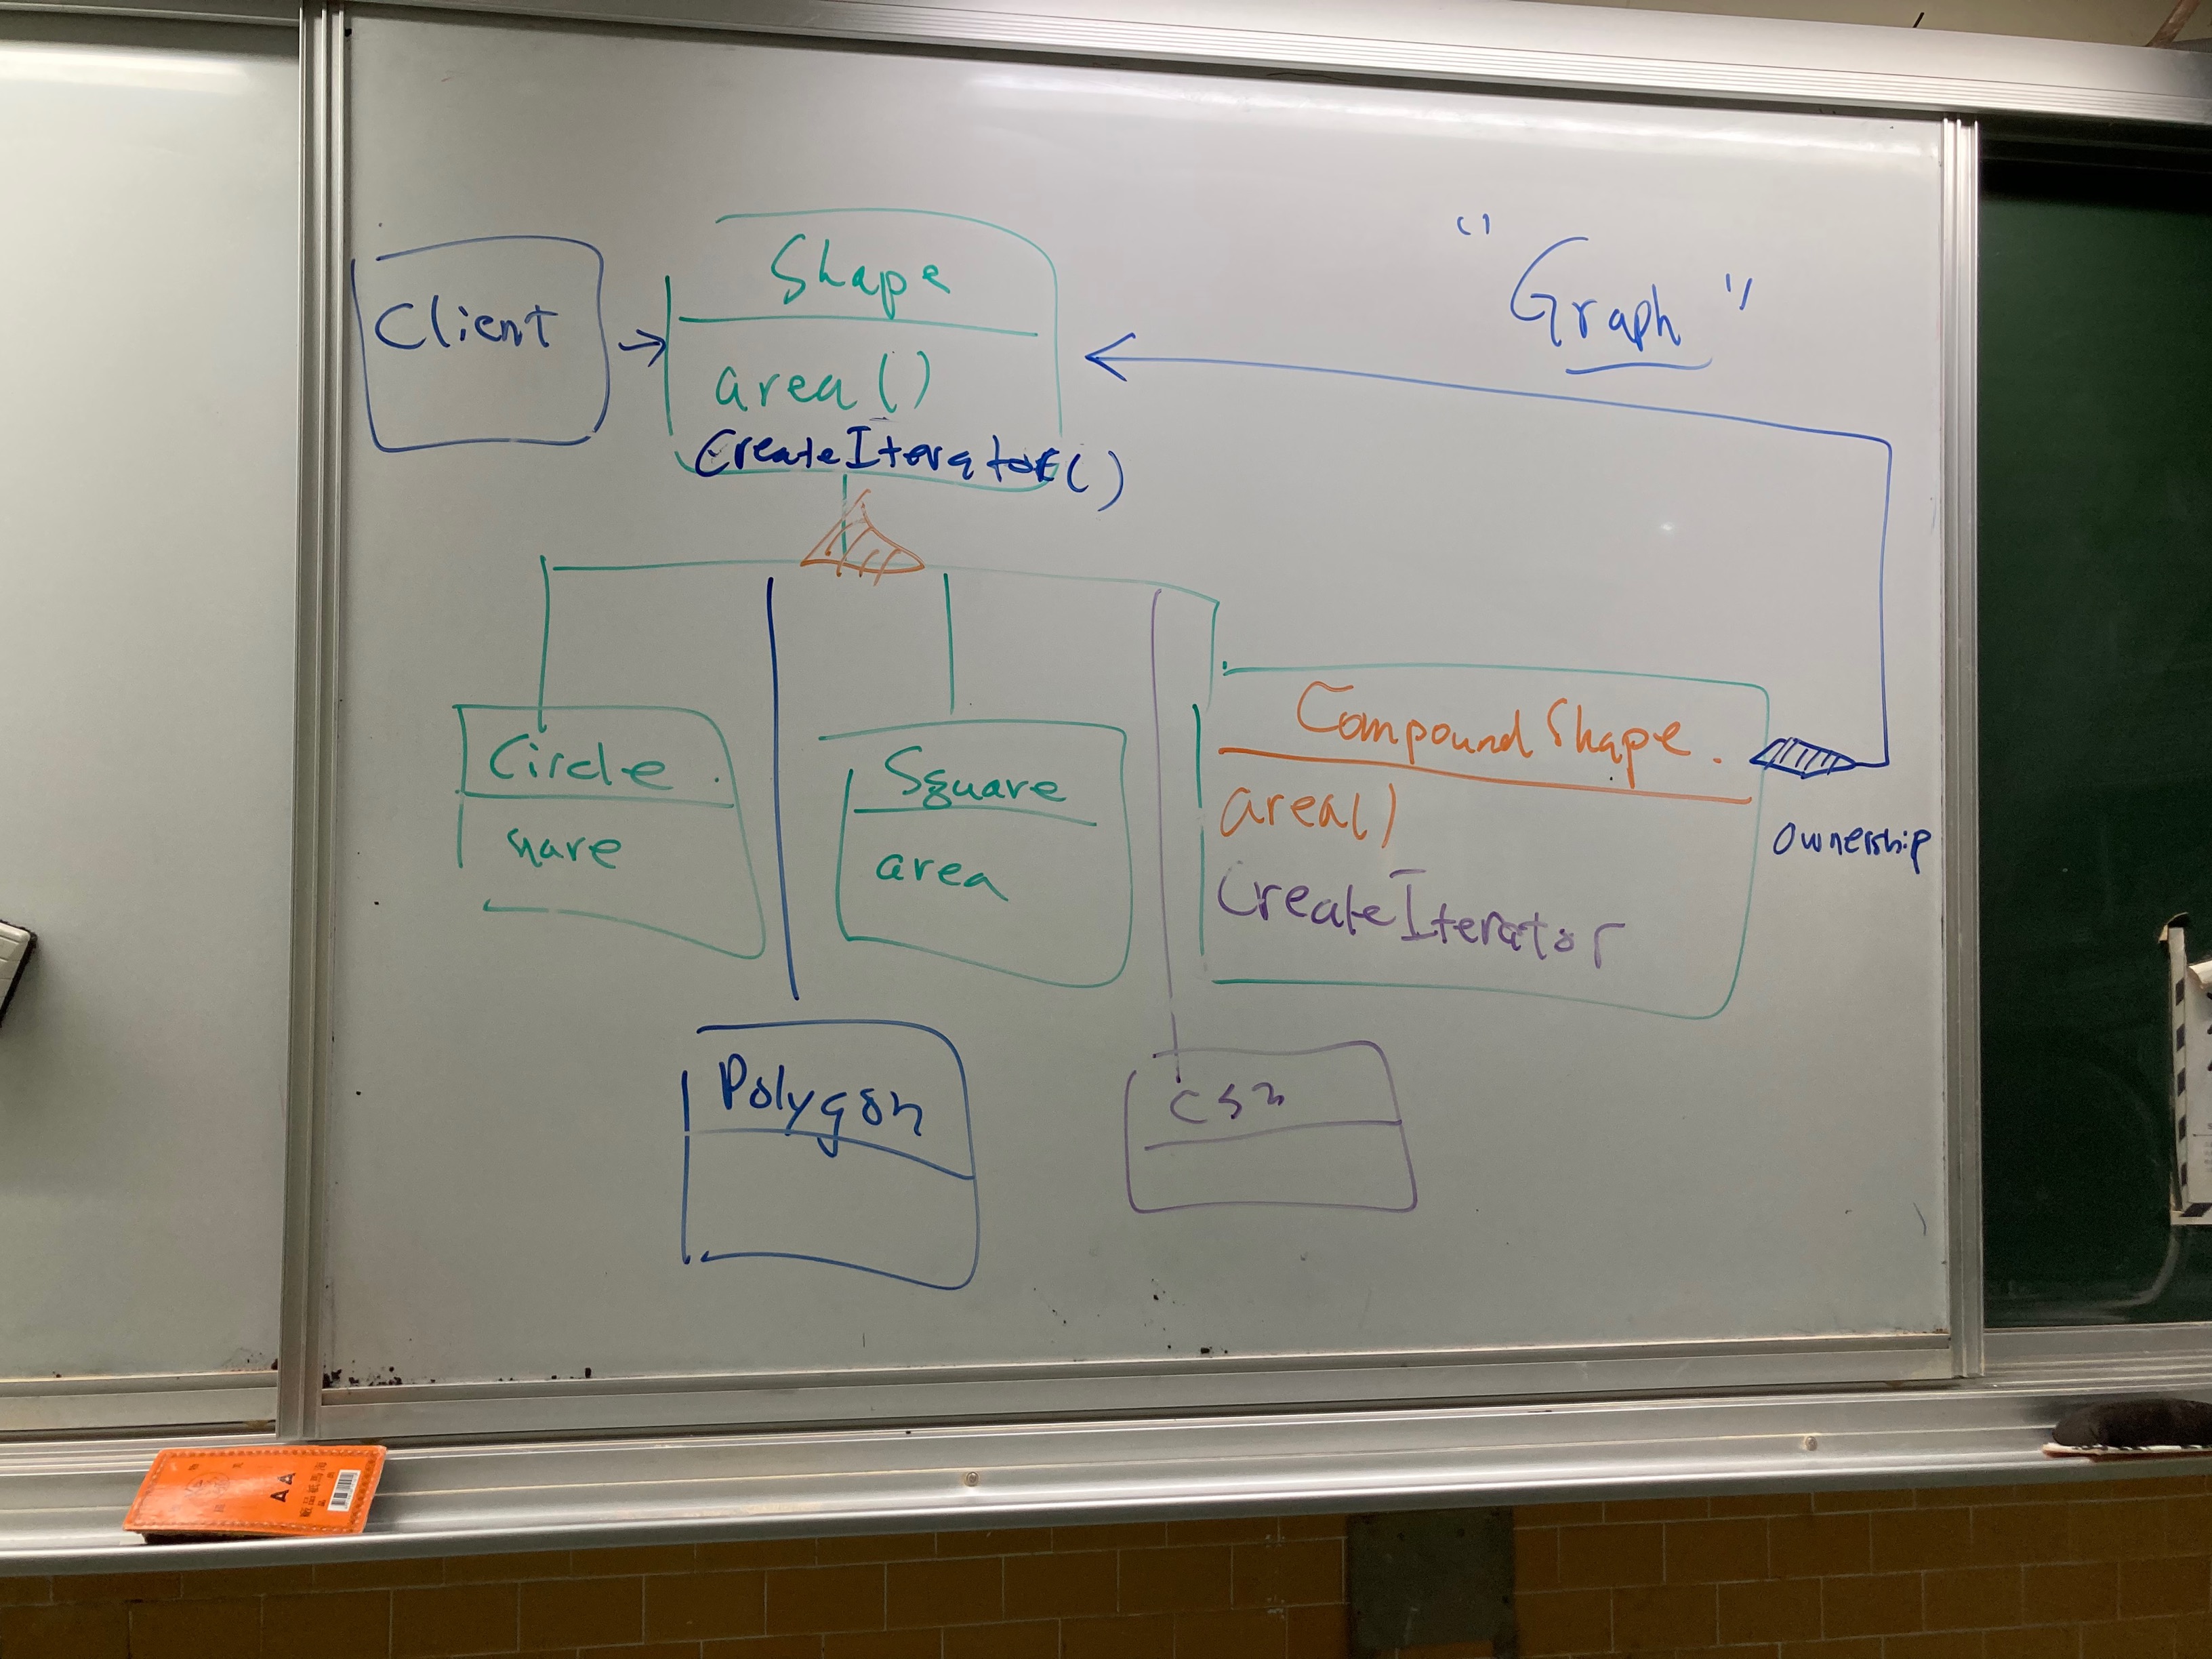 "Graph"
Client
Shape
area()
CreateIterator()
Circle
Square
area
Compound Shape.
area()
CreateIterator
Ownership
Polygon
AA